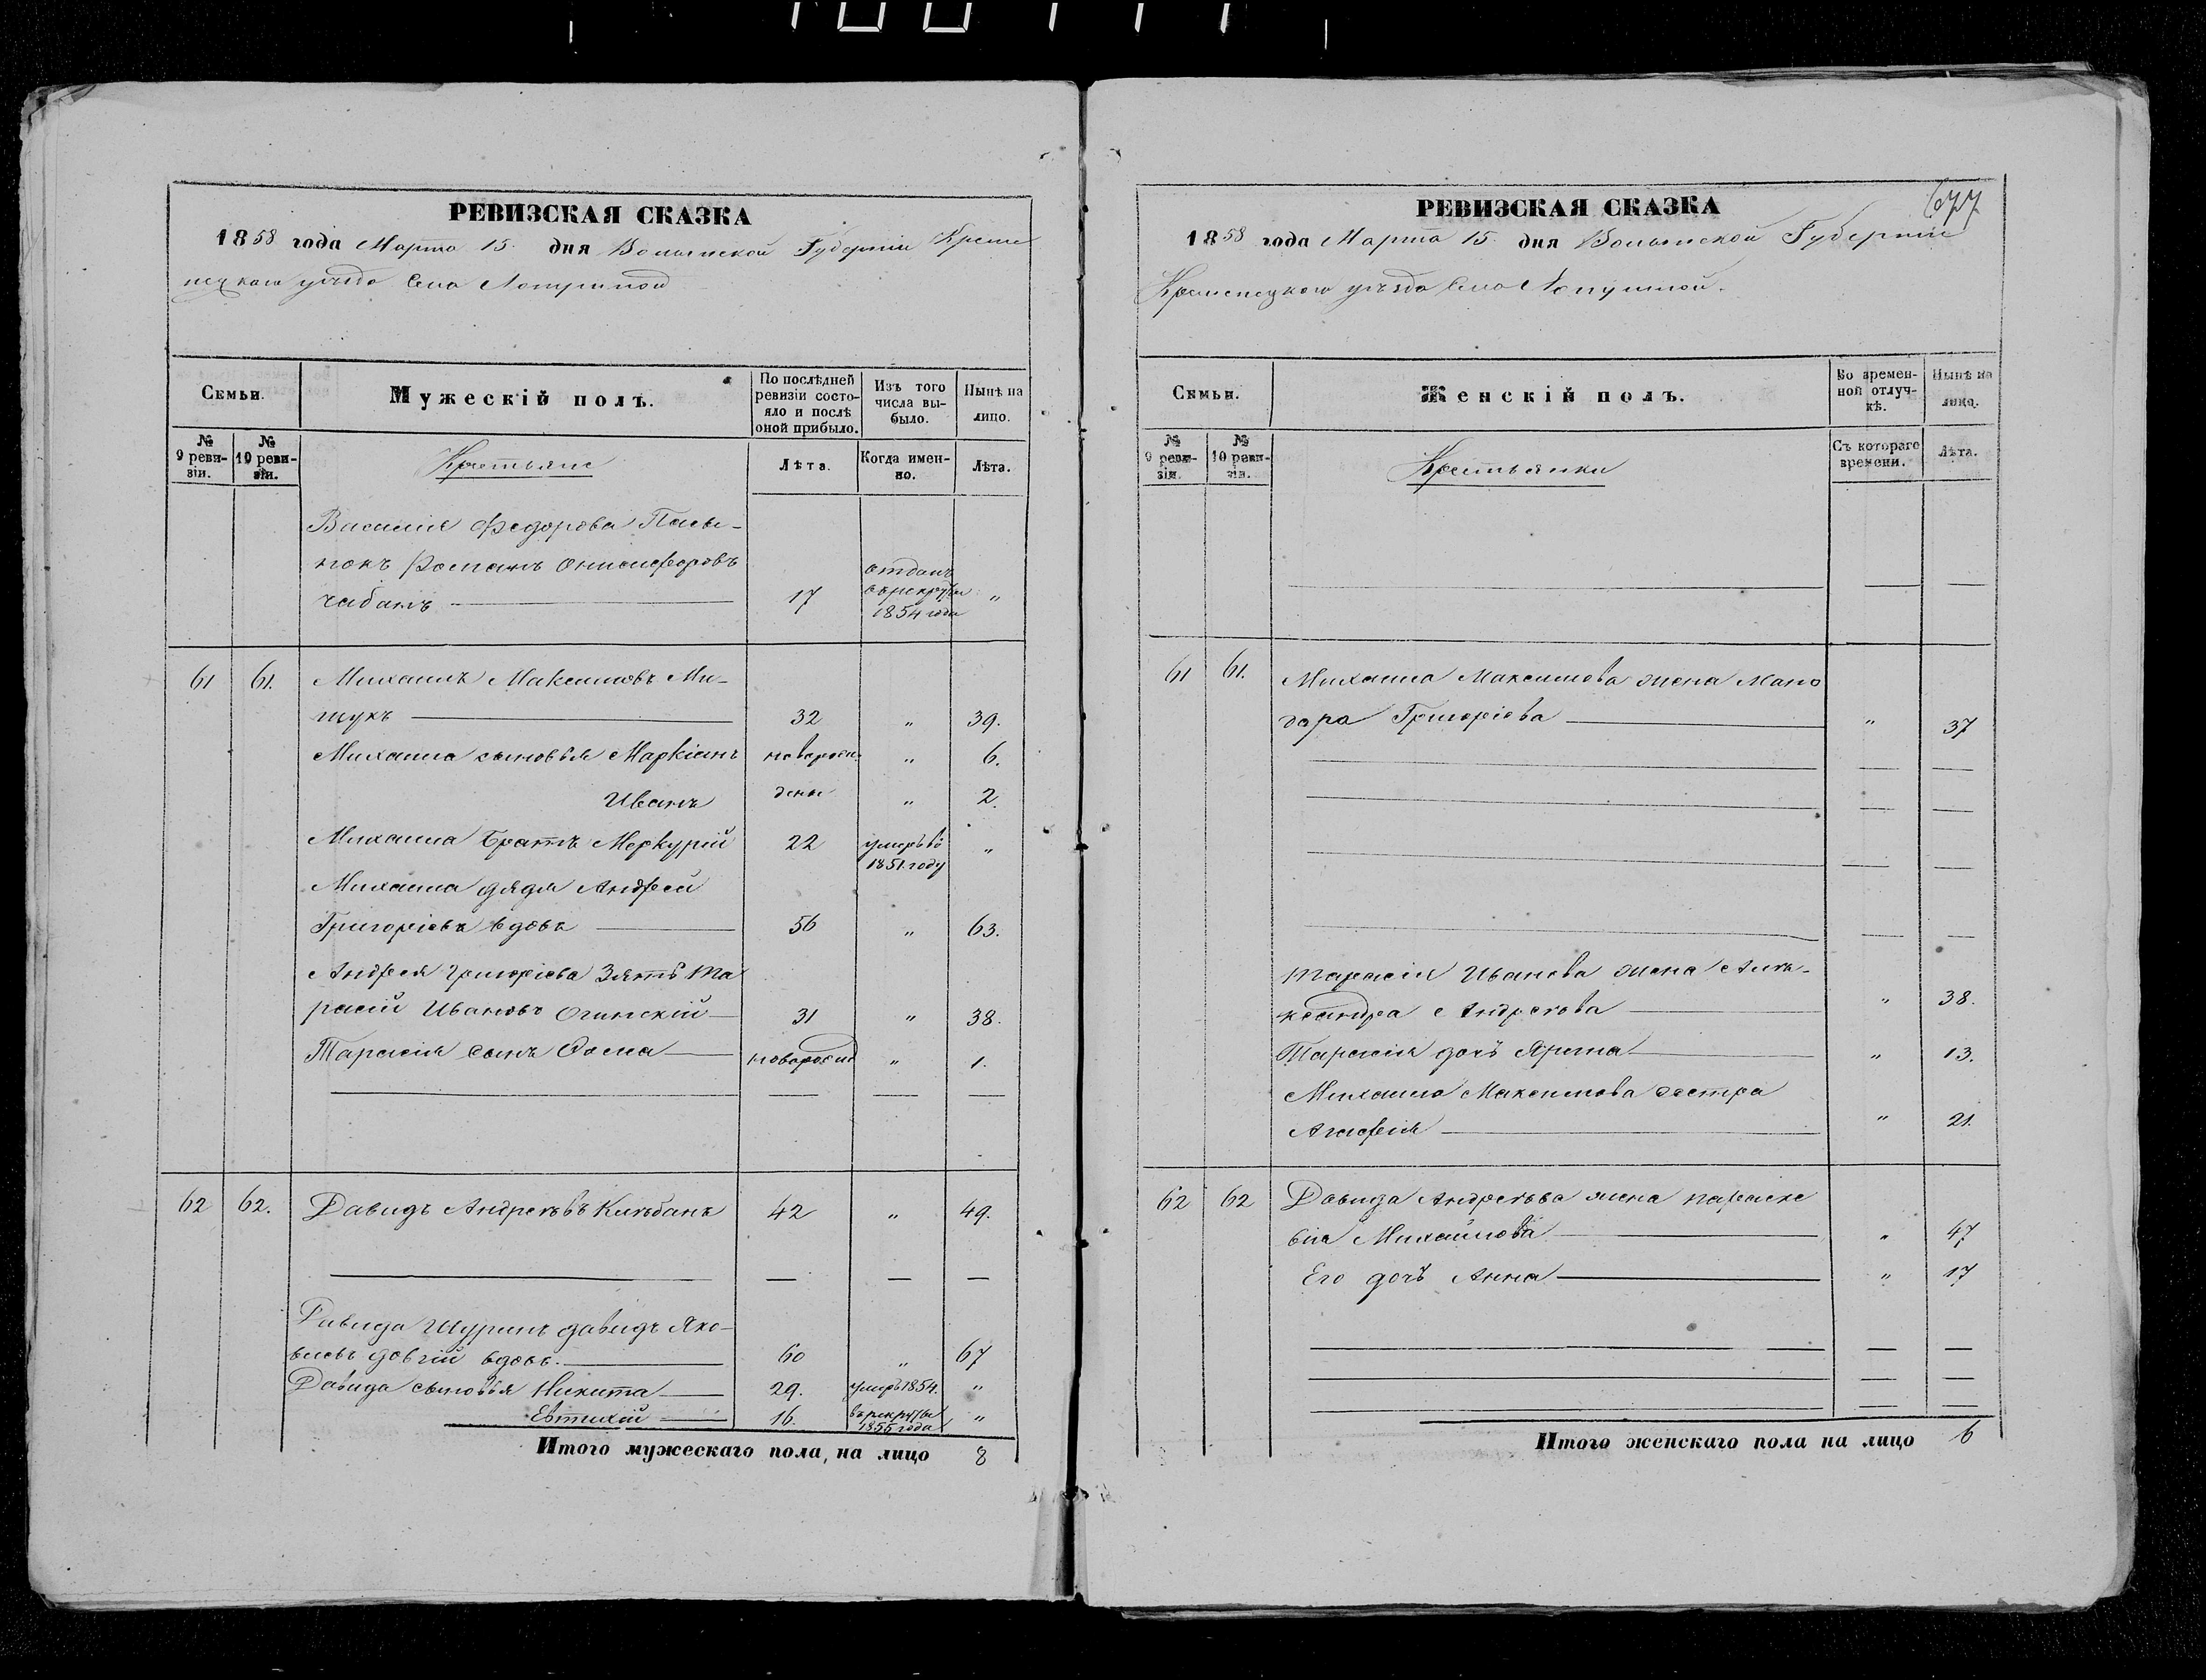 РЕВИЗСКАЯ СКАЗКА
1858 года Марта 15 дня Волынской Губерніи Креме
нецкаго уѣзда Села Лопушной
Семьи.
Мужескій полъ.
По послѣдней ревизіи состояло и послѣ оной прибыло.
Изъ того числа выбыло.
Нынѣ на лицо.
№ 9 ревизіи.
№ 10 ревизіи.
Крестьяне
Лѣта.
Когда именно.
Лѣта.
Василія Федорова Пасы-
нокъ Романъ Онисифоровъ
чабанъ 17 отданъ въ рекруты 1854 года "
61 61. Михаилъ Максимовъ Ми-
щукъ 32 " 39.
Михаила сыновья Маркіанъ новорож- " 6.
Иванъ дены " 2.
Михаила братъ Меркурій 22 умеръ въ 1851 году "
Михаила дядя Андрей
Григоріевъ вдовъ 56 " 63.
Андрея Григоріева Зять Та
расій Ивановъ Огинскій 31 " 38.
Тарасія сынъ Фома новорожд " 1.
62 62. Давидъ Андреевъ Кильбанъ 42 " 49.
Давида Шуринъ давидъ Яко-
влевъ довгій вдовъ. 60 " 67
Давида сыновья Никита 29. умеръ 1854. "
Евтихій 16. въ рекруты 1855 года "
Итого мужескаго пола, на лицо 8
677
РЕВИЗСКАЯ СКАЗКА
1858 года Марта 15 дня Волынской Губерніи
Кременецкаго уѣзда Села Лопушной.
Семьи.
Женскій полъ.
Во временной отлучкѣ.
Нынѣ на лицо.
№ 9 ревизіи.
№ 10 ревизіи.
Крестьянки
Съ котораго времени.
Лѣта.
61 61. Михаила Максимова жена Мано
дора Григоріева " 37
Тарасія Иванова жена Але-
ксандра Андреева " 38.
Тарасія дочь Ярина " 13.
Михаила Максимова сестра
Агафія " 21.
62 62 Давида Андреева жена параске
вія Михайлова " 47
Его дочь Анна " 17
Итого женскаго пола на лицо 6